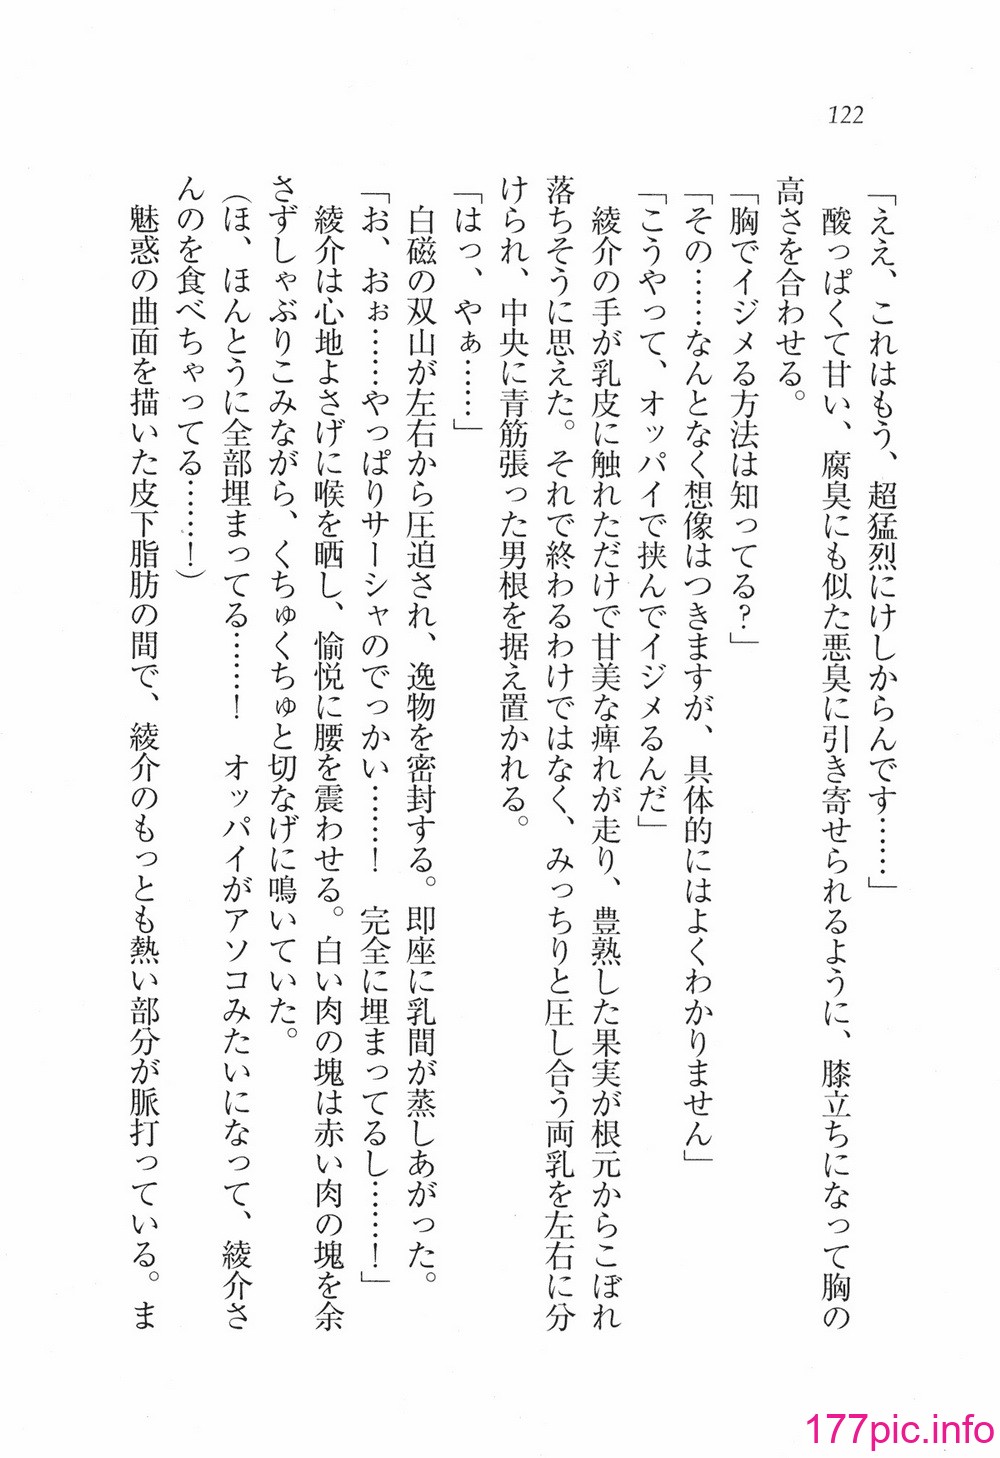 122
「ええ、これはもう、超猛烈にけしからんです……」
　酸っぱくて甘い、腐臭にも似た悪臭に引き寄せられるように、膝立ちになって胸の
高さを合わせる。
「胸でイジメる方法は知ってる？」
「その……なんとなく想像はつきますが、具体的にはよくわかりません」
「こうやって、オッパイで挟んでイジメるんだ」
　綾介の手が乳皮に触れただけで甘美な痺れが走り、豊熟した果実が根元からこぼれ
落ちそうに思えた。それで終わるわけではなく、みっちりと圧し合う両乳を左右に分
けられ、中央に青筋張った男根を据え置かれる。
「はっ、やぁ……」
　白磁の双山が左右から圧迫され、逸物を密封する。即座に乳間が蒸しあがった。
「お、おぉ……やっぱりサーシャのでっかい……！　完全に埋まってるし……！」
　綾介は心地よさげに喉を晒し、愉悦に腰を震わせる。白い肉の塊は赤い肉の塊を余
さずしゃぶりこみながら、くちゅくちゅと切なげに鳴いていた。
（ほ、ほんとうに全部埋まってる……！　オッパイがアソコみたいになって、綾介さ
んのを食べちゃってる……！）
　魅惑の曲面を描いた皮下脂肪の間で、綾介のもっとも熱い部分が脈打っている。ま
177pic.info